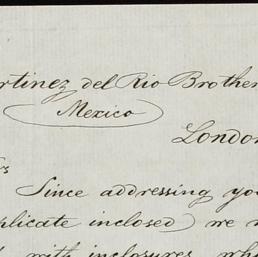 rtinez del Rio Brother
Mexico
London
rs
Since addressing yo
plicate inclosed) we
with inclosures, wh